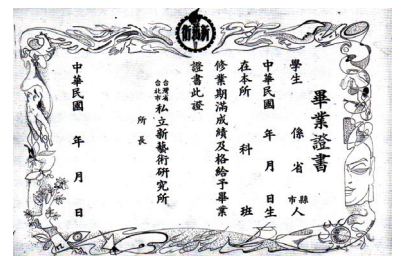 新藝術
畢業證書
學生 係 省 縣市 人
中華民國 年 月 日生
在本所 科 班
修業期滿成績及格給予畢業
證書此證
台灣省台北市私立新藝術研究所
所長
中華民國 年 月 日